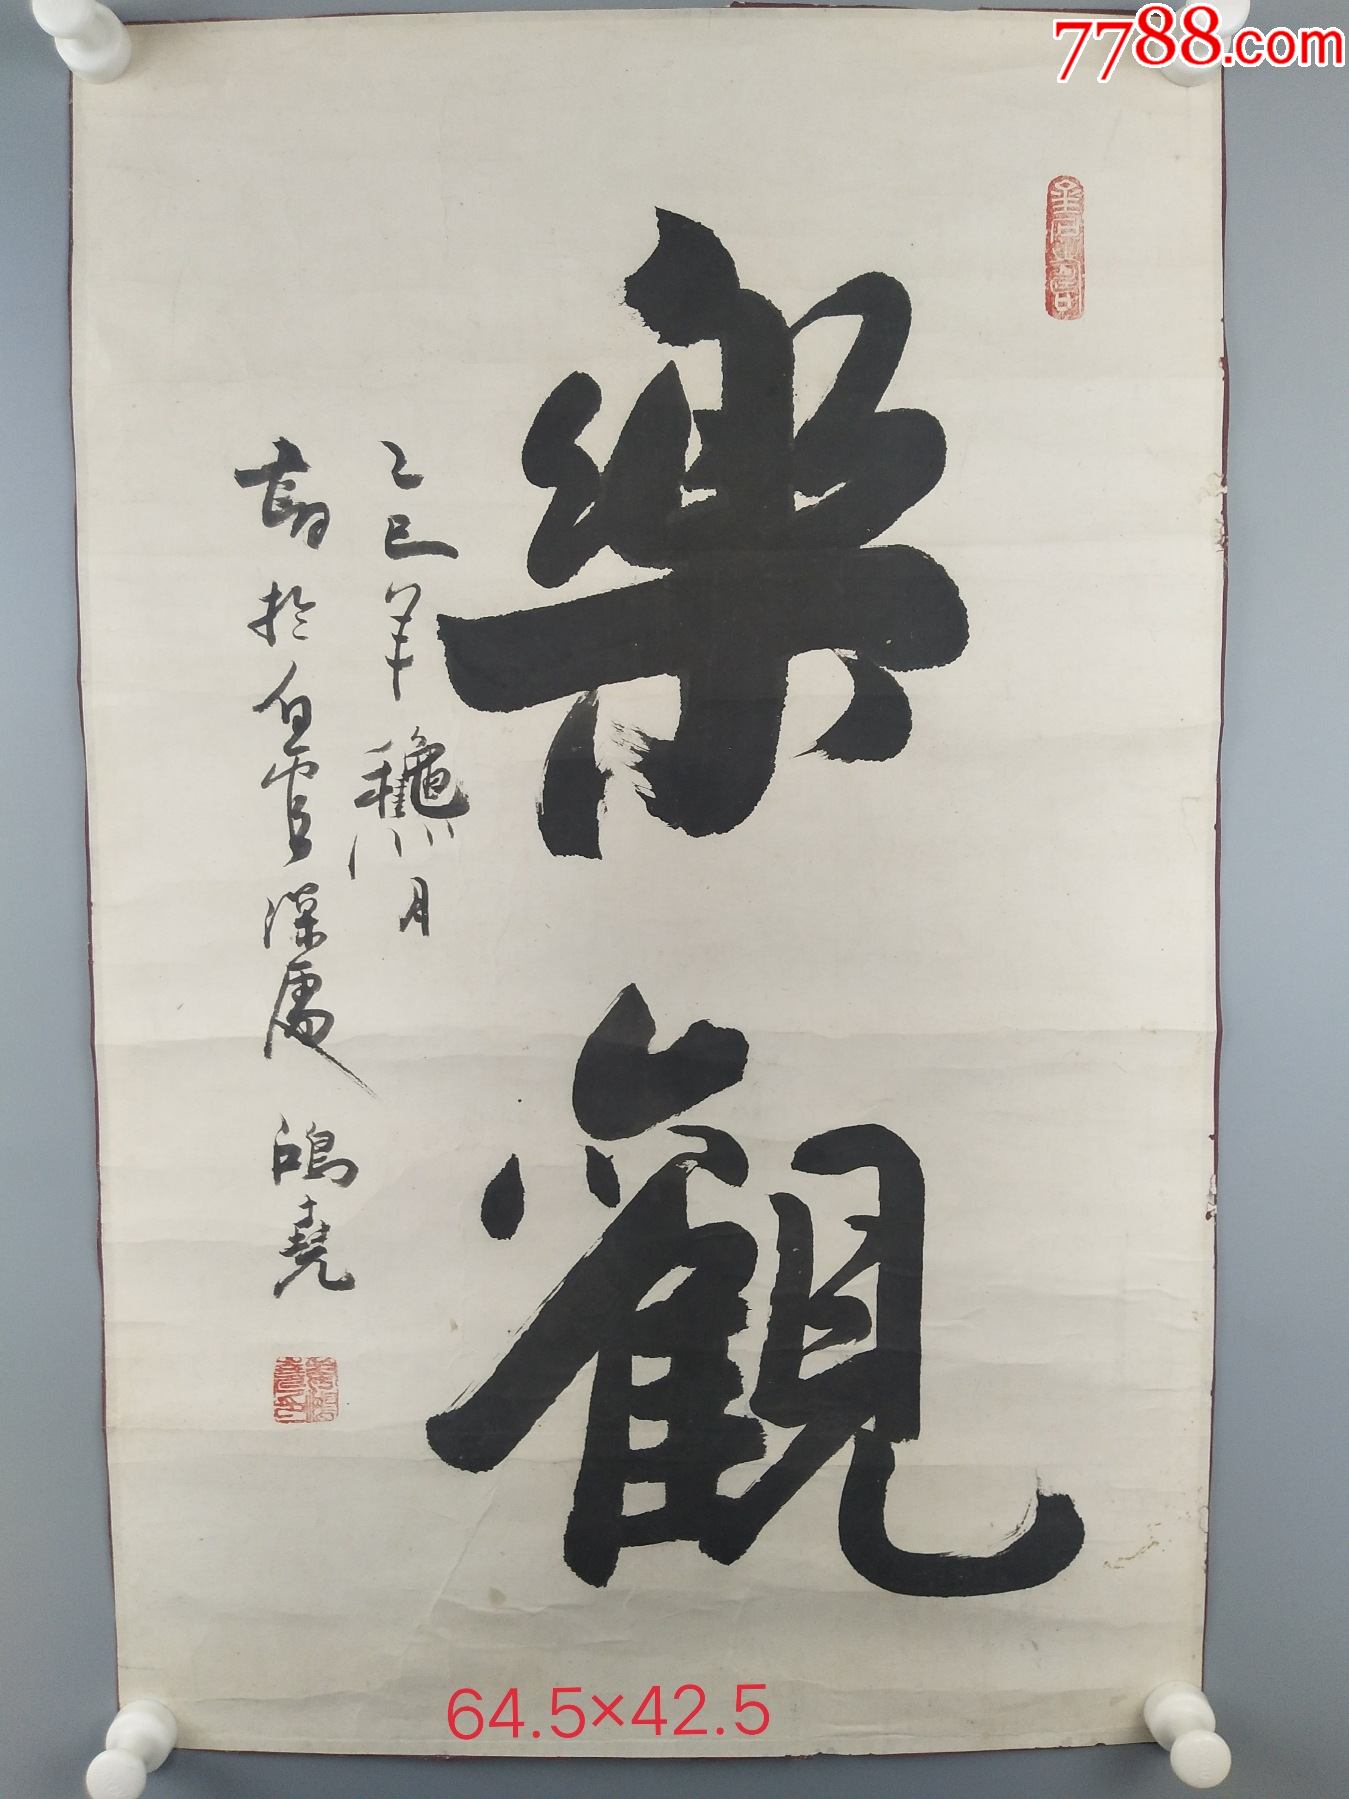 7788.com
樂觀
乙巳年龝月
於白雲深處
鴻堯
64.5×42.5